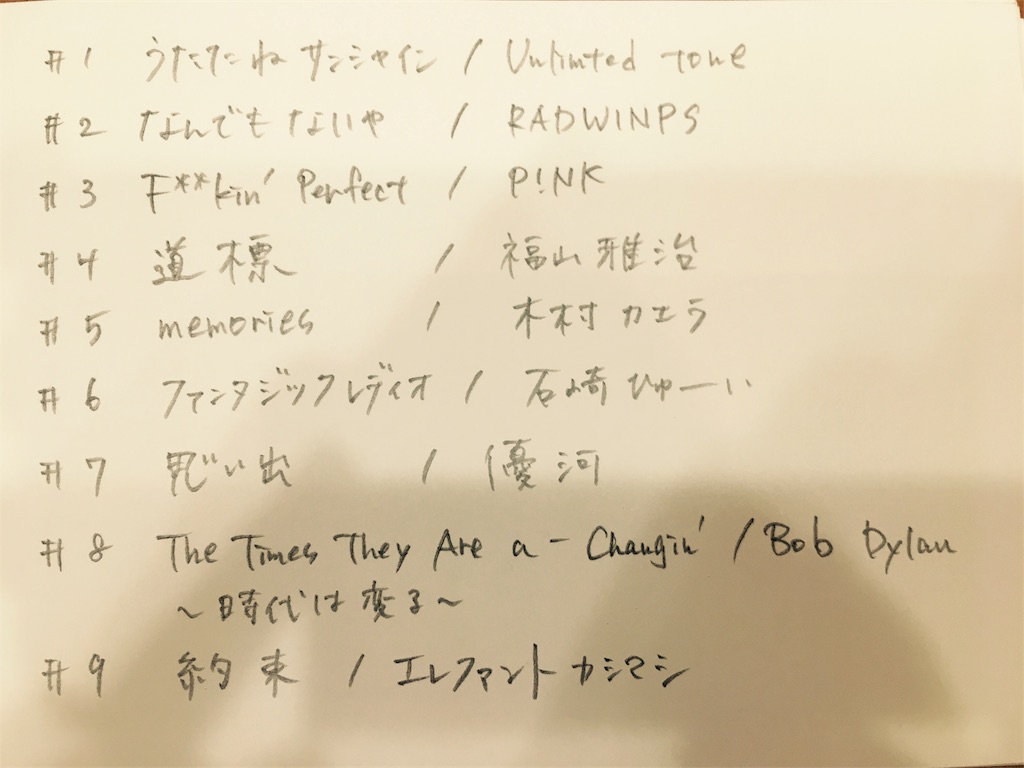 #1 うたたねサンシャイン / Unlimited tone
#2 なんでもないや / RADWINPS
#3 F**kin' Perfect / P!NK
#4 道標 / 福山雅治
#5 memories / 木村カエラ
#6 ファンタジックレディオ / 石崎ひゅーい
#7 思い出 / 優河
#8 The Times They Are a-Changin' / Bob Dylan
~時代は変る~
#9 約束 / エレファントカシマシ